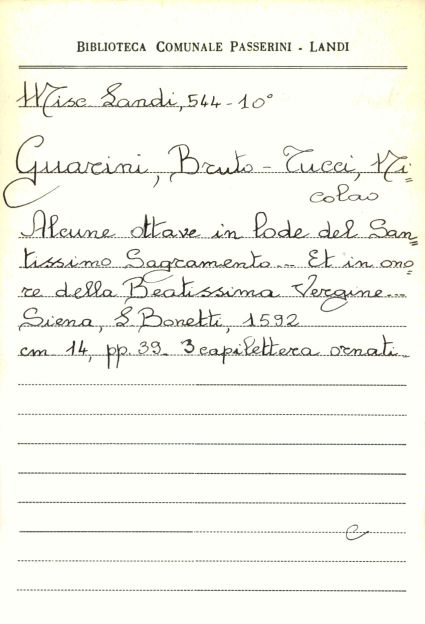 BIBLIOTECA COMUNALE PASSERINI - LANDI
Misc. Landi, 544 - 10°
Guarini, Bruto - Tucci, Ni=
colao
Alcune ottave in lode del San=
tissimo Sagramento... Et in ono=
re della Beatissima Vergine...
Siena, L. Bonetti, 1592
cm 14, pp. 39. 3 capilettera ornati.
e